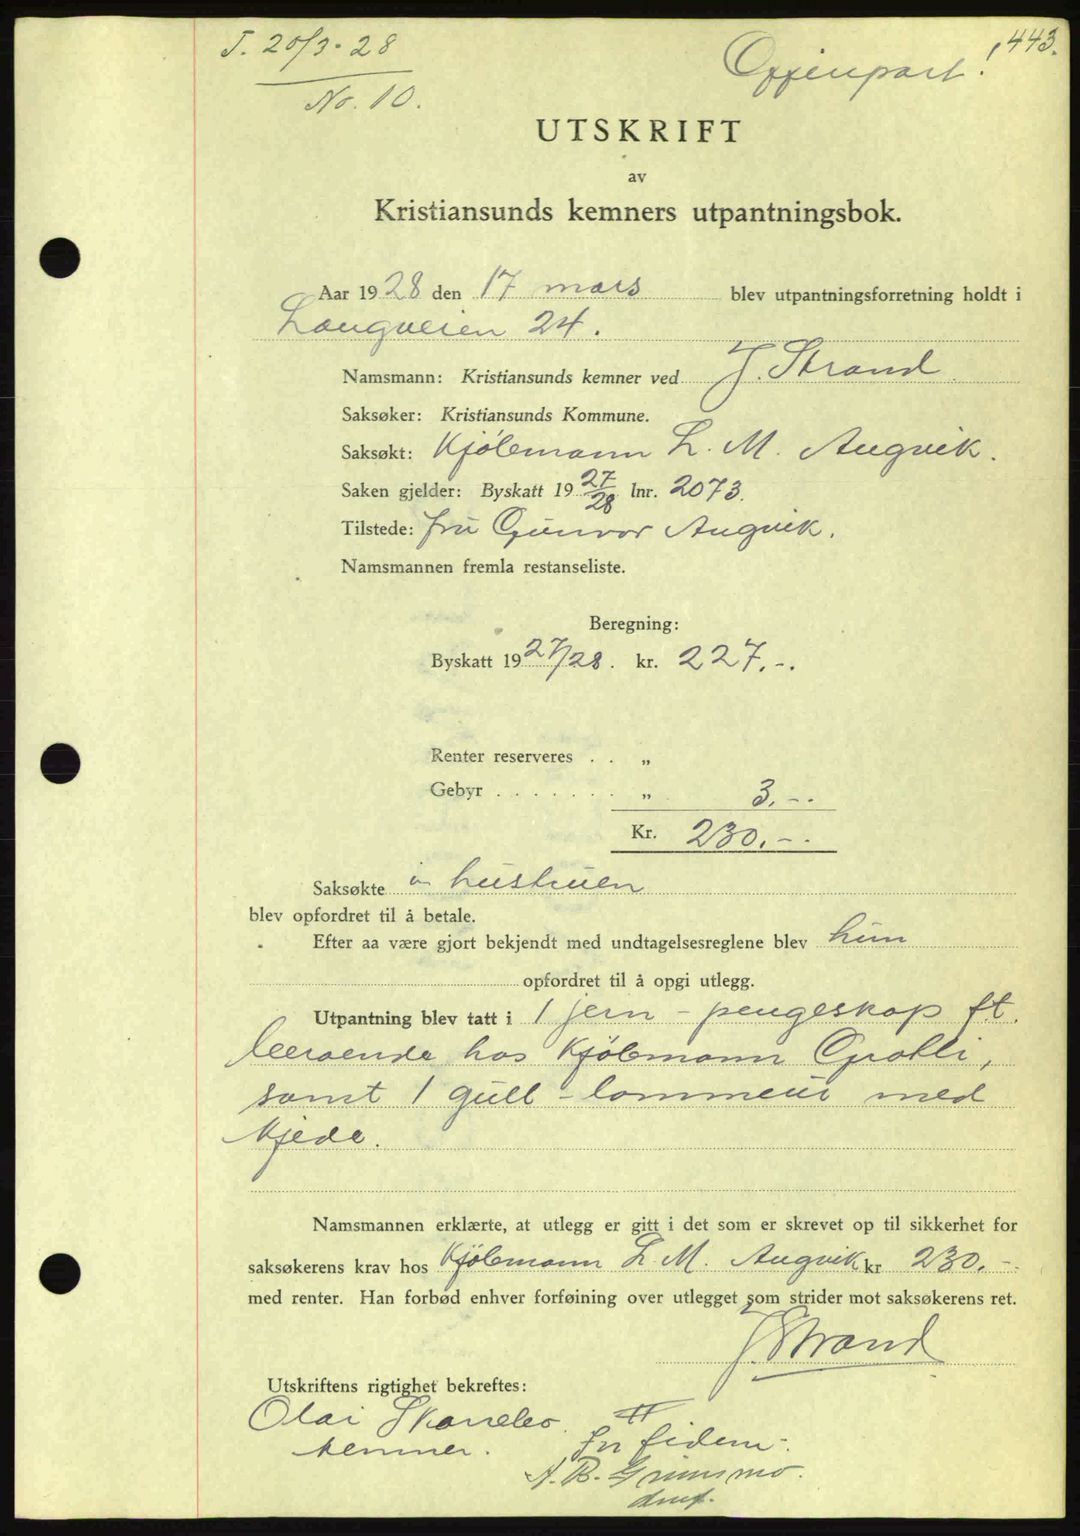 443.
J. 20/3-28
No. 10.
Gjenpart!
UTSKRIFT
av
Kristiansunds kemners utpantningsbok.
Aar 1928 den 17 mars blev utpantningsforretning holdt i
Langveien 24.
Namsmann: Kristiansunds kemner ved J. Strand.
Saksøker: Kristiansunds Kommune.
Saksøkt: Kjöbmann L. M. Augvik.
Saken gjelder: Byskatt 1927/28 lnr. 2073.
Tilstede: fru Gunvor Augvik.
Namsmannen fremla restanseliste.
Beregning:
Byskatt 1927/28. kr. 227.-.
Renter reserveres . . „
Gebyr . . . . . . . „ 3.-.
Kr. 230.-.
Saksøkte v hustruen
blev opfordret til å betale.
Efter aa være gjort bekjendt med undtagelsesreglene blev hun
opfordret til å opgi utlegg.
Utpantning blev tatt i 1 jern-pengeskap f.t.
beroende hos Kjöbmann Grolli,
samt 1 gull-lommeur med
kjede.
Namsmannen erklærte, at utlegg er gitt i det som er skrevet op til sikkerhet for
saksøkerens krav hos Kjöbmann L. M. Augvik kr 230.-
med renter. Han forbød enhver forføining over utlegget som strider mot saksøkerens ret.
J. Strand
Utskriftens rigtighet bekreftes:
Olai Skarsbo
kemner.
In fidem:
A. B. Grimsmo.